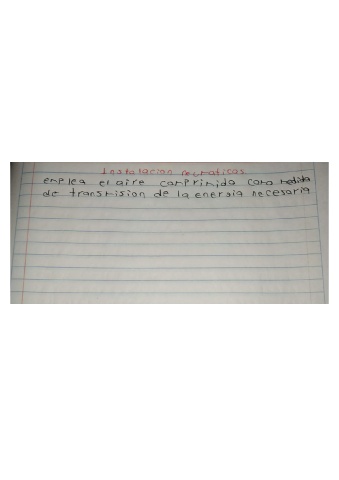 Instalacion neumaticas
emplea el aire comprimido como medida
de transmision de la energia necesaria